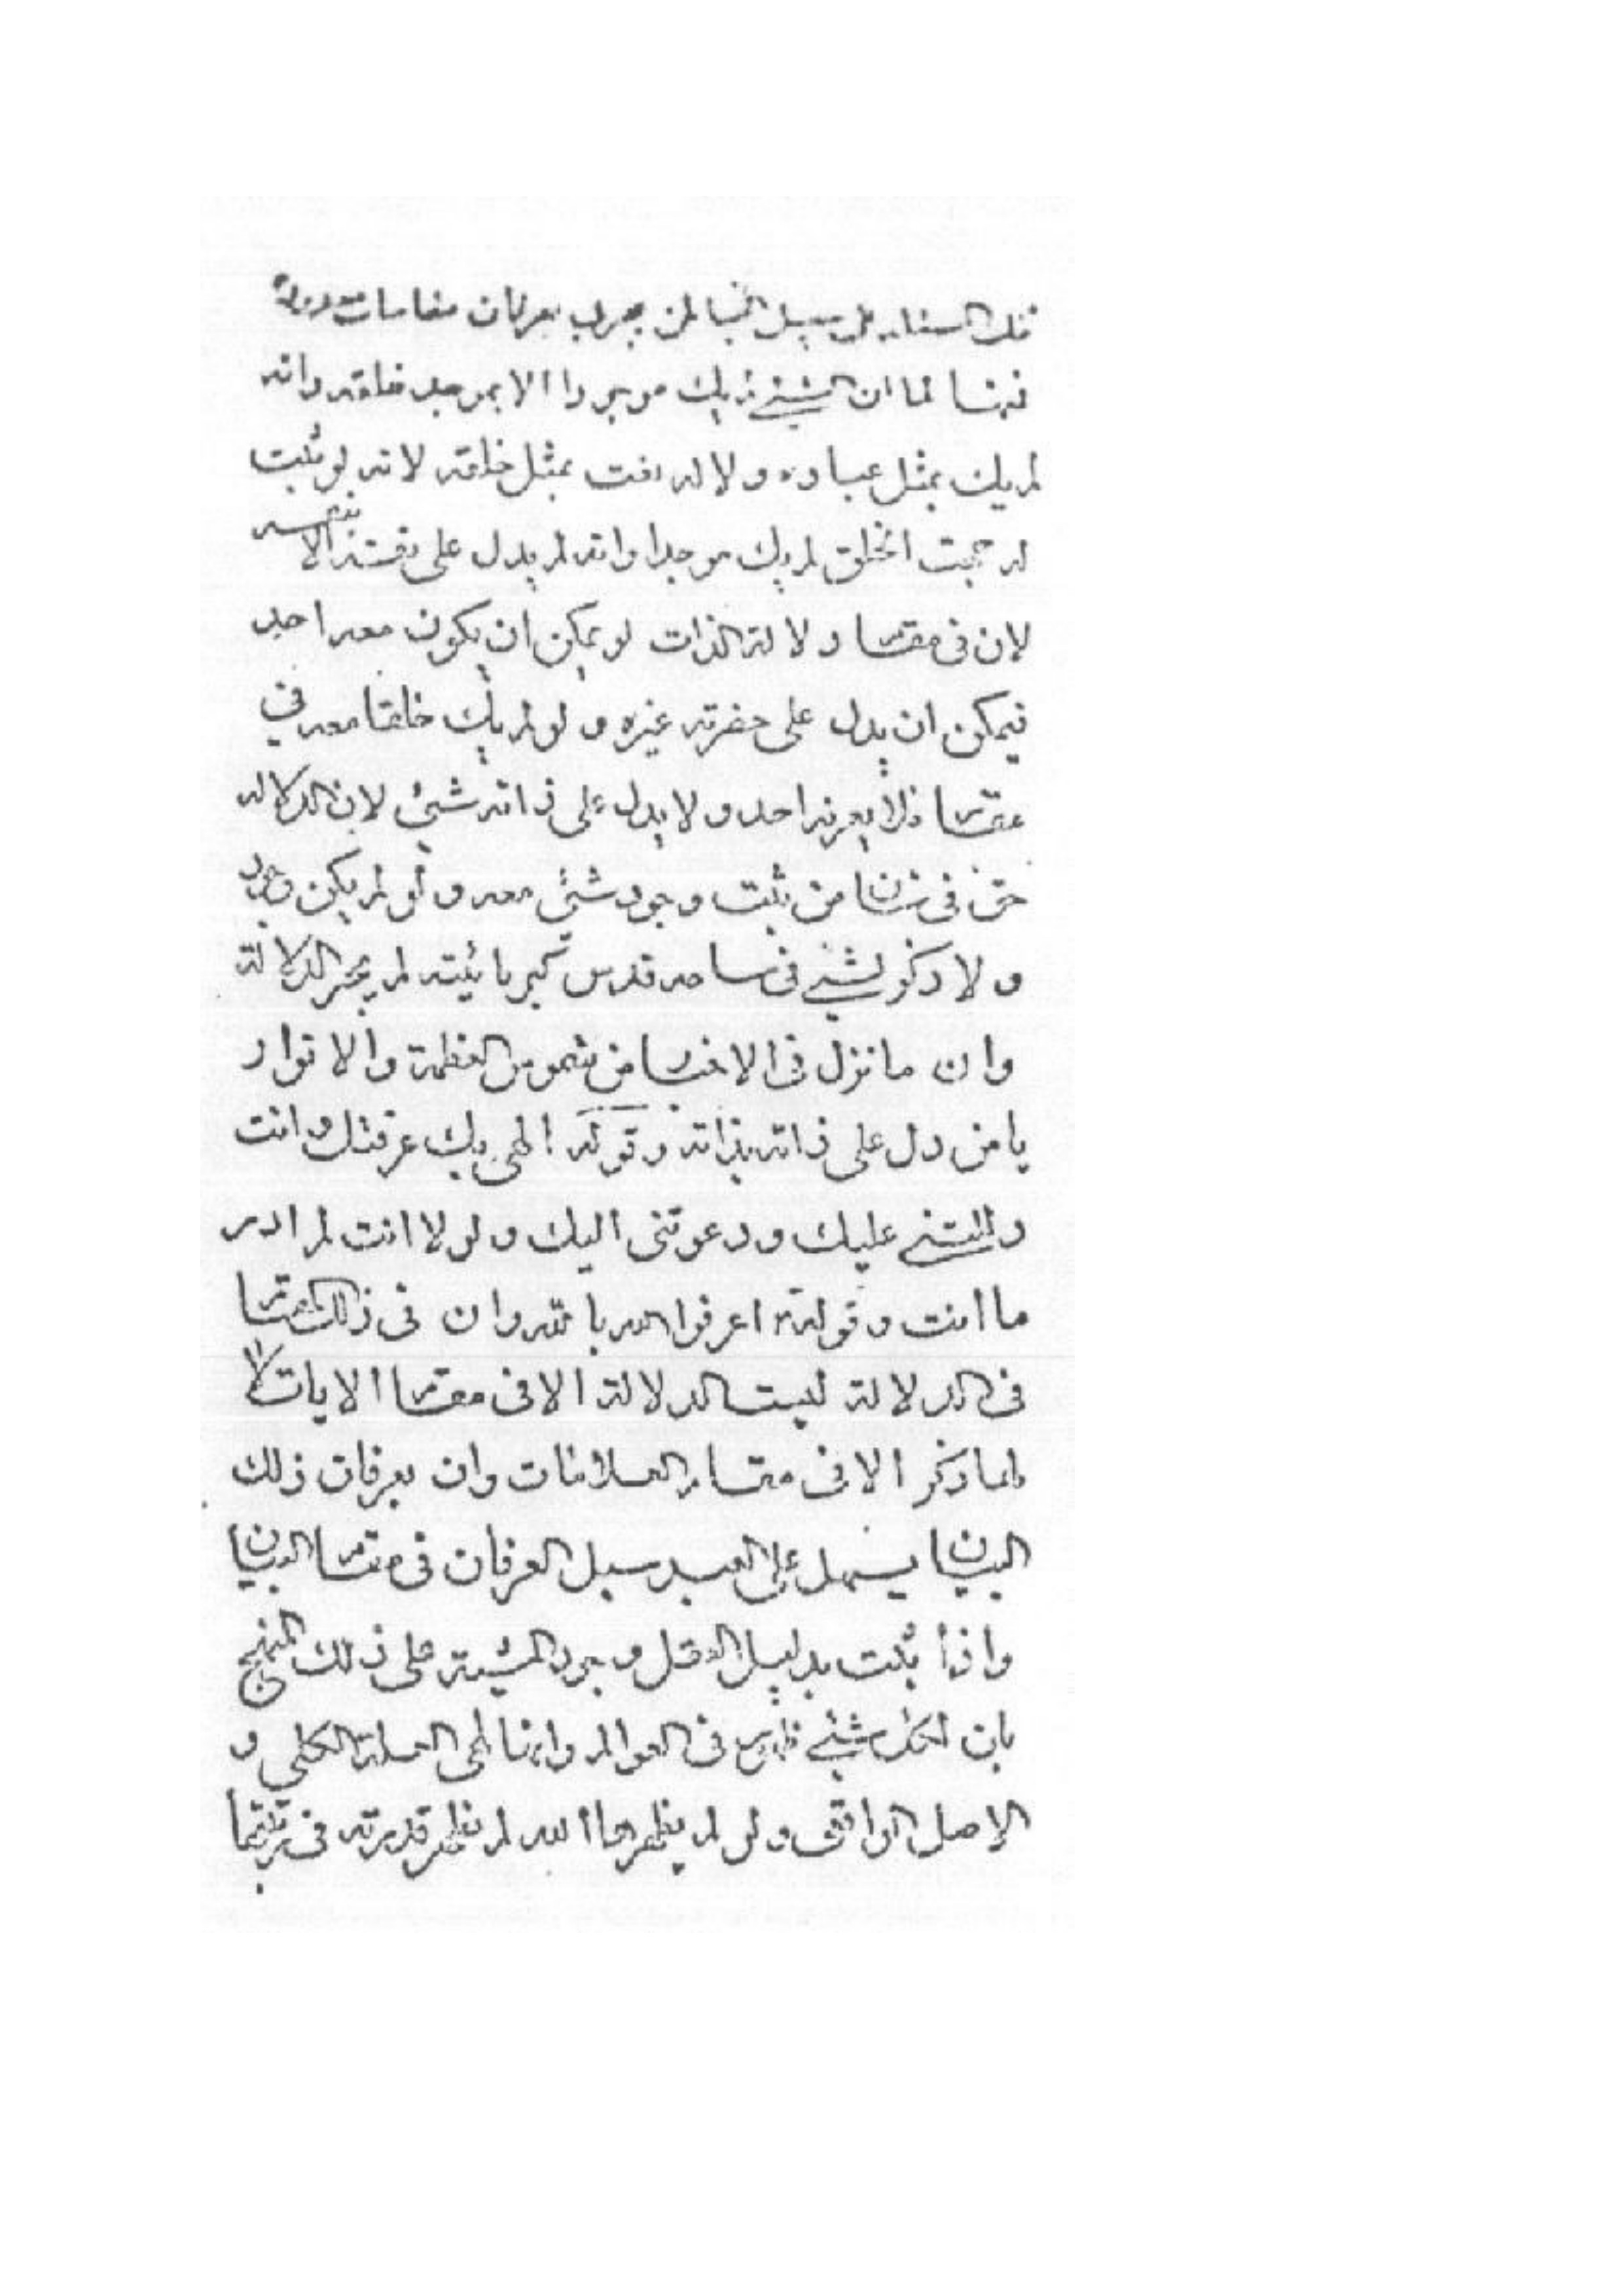 سبيل لمن بعرفان مقامات
فمنها لما ان الشيئ لم يك موجودا الا بموجد خلقه وانه
لم يك بمثل عباده ولا له نعت بمثل خلقه لانه لو ثبت
له نعت الخلق لم يك موجدا وانه لم يدل على نفسه الا بنفسه
لان في مقام دلالة الذات لو يمكن ان يكون معه احد
فيمكن ان يدل على حضرته غيره ولو لم يك خلقا معه في
مقام فلا يعرفه احد ولا يدل على ذاته شيئ لان الدلالة
حق في شان من يثبت وجود شيئ معه ولو لم يكن وجود
ولا ذكر لشيئ في ساحه قدس كبريائيته لم يجر الدلالة
وان ما نزل في الاخبار من شموس العظمة والانوار
يا من دل على ذاته بذاته وقوله الهي بك عرفتك وانت
دللتني عليك ودعوتني اليك ولولا انت لم ادر
ما انت وقوله اعرفوا الله بالله وان في ذلك المقام
في الدلالة ليست الدلالة الا في مقام الايات ولا
لها ذكر الا في مقام العلامات وان بعرفان ذلك
البيان يسهل على العبد سبل العرفان في مقام البيان
واذا ثبت بدليل العقل وجود المشية على ذلك المنهج
بان لكل شيئ في العوالم وانها لهي العلة الكلي و
الاصل الواقف ولو لم يظهرها الله لم تظهر قدرته في